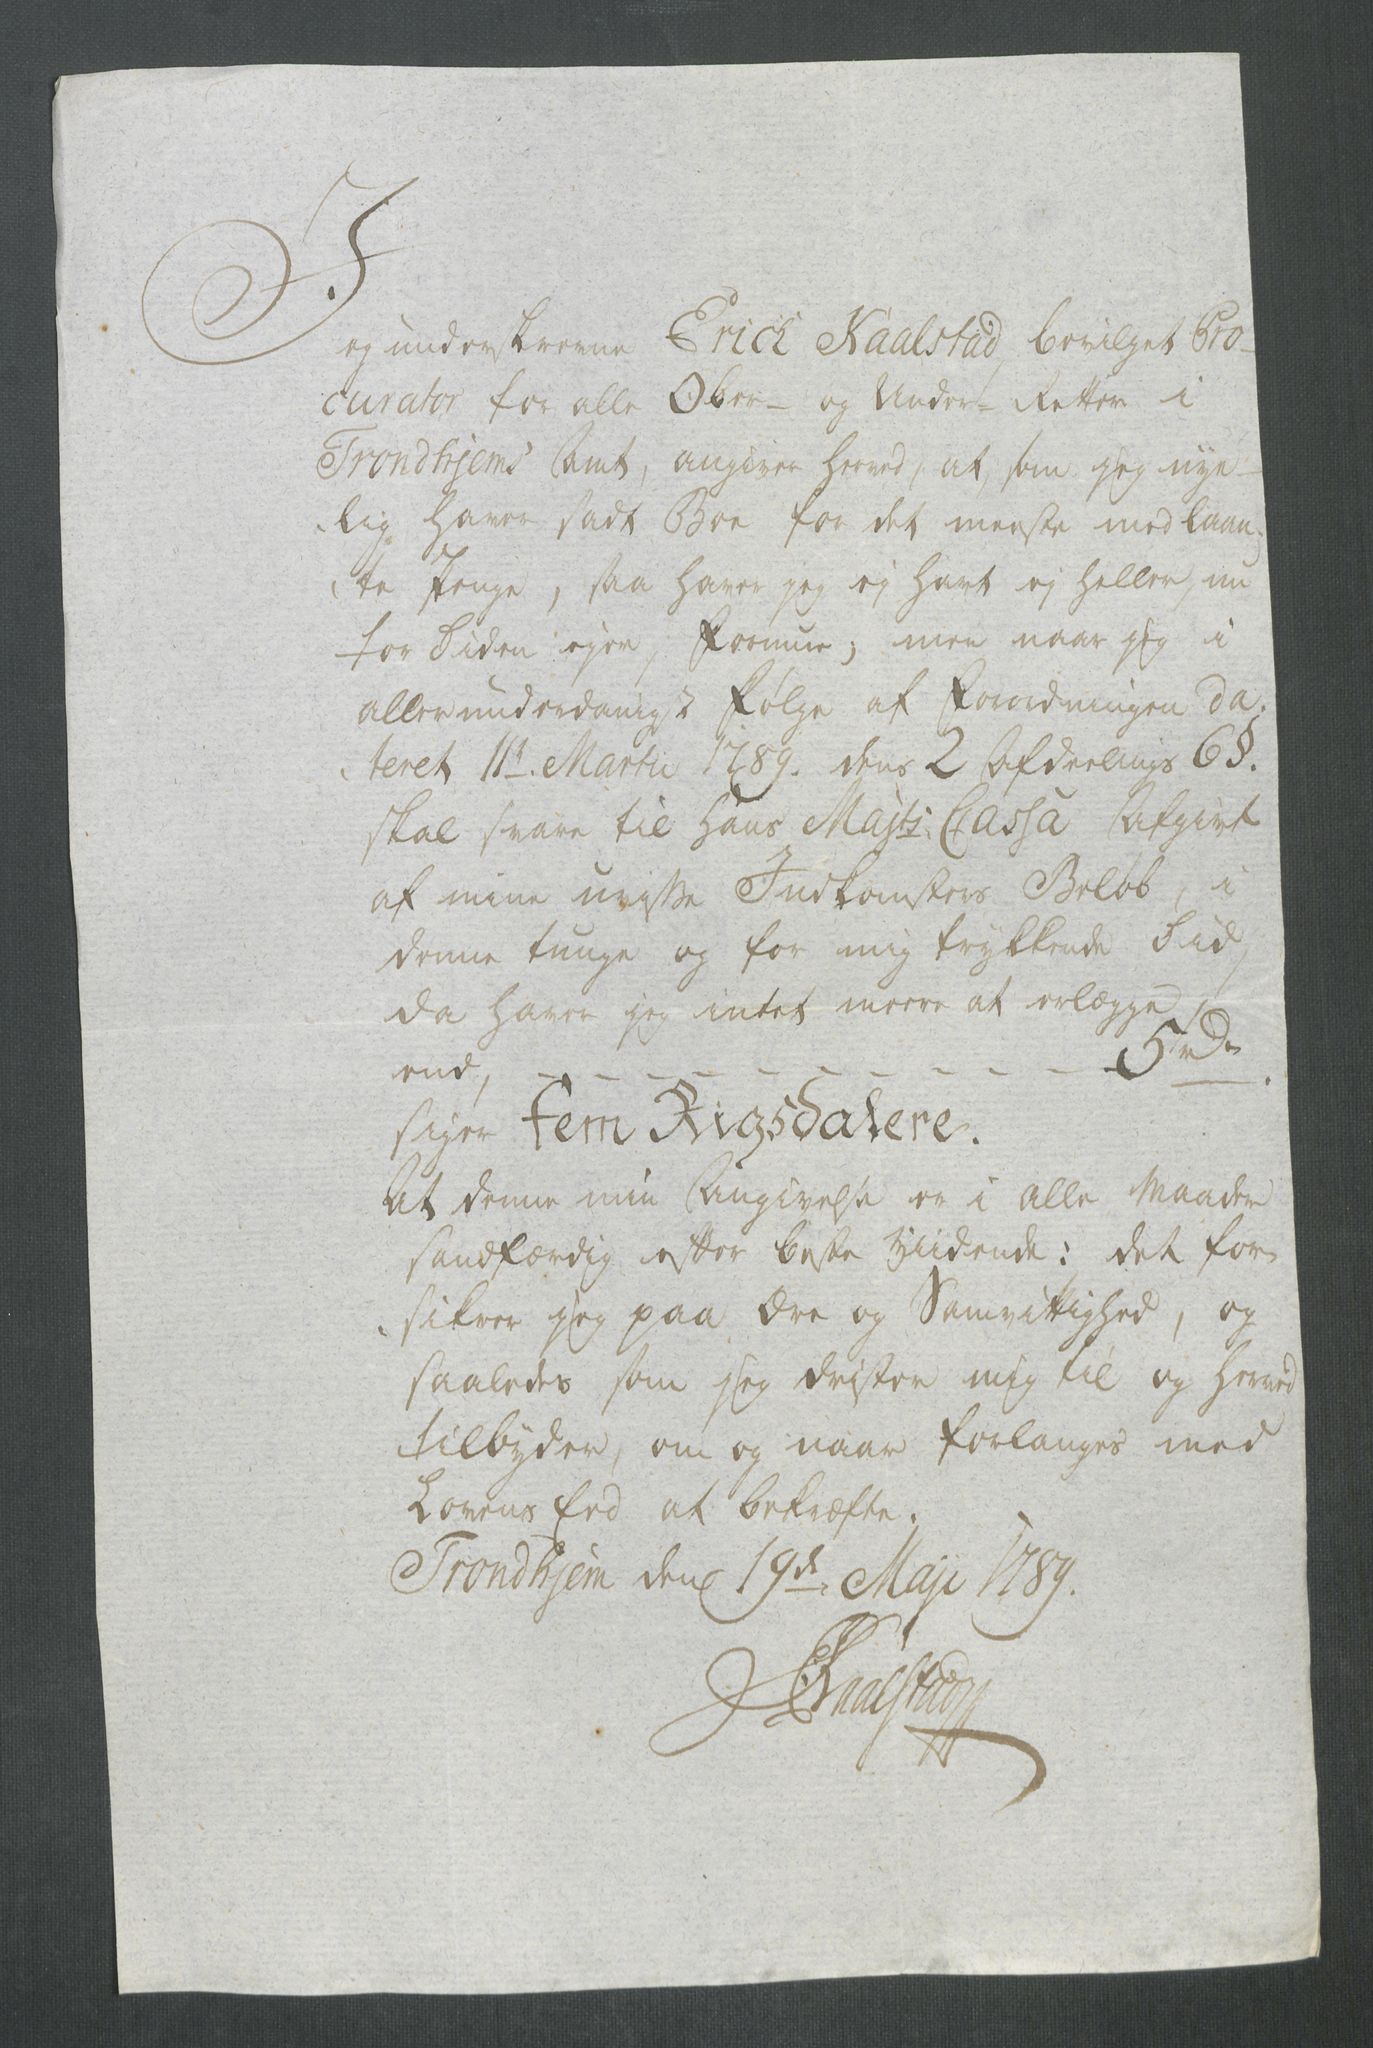 Jeg underskrevne Erich Kaalstad, bevilget Pro-
curator for alle Ober- og Under-Retter i
Trondhjems Amt, angiver herved, at, som jeg nye-
lig haver sadt Boe for det meeste med laan-
te Penge, saa haver jeg ej havt ej heller, nu
for Tiden ejer, Formue; men naar jeg i
allerunderdanigst Følge af Forordningen da-
teret 11t. Martii 1789. dens 2 Afdeelings 6§.
skal svare til Hans Majts: Cassa Afgivt
af mine uvisse Indkomsters Beløb, i
denne tunge og for mig trykkende Tid,
da haver jeg intet meere at erlægge,
end, - - - - - - - - - - 5 rd.
siger fem Rigsdalere.
At denne min Angivelse er i alle Maader
sandfærdig efter beste Vidende: det for-
sikrer jeg paa Ære og Samvittighed, og
saaledes som jeg drister mig til og herved
tilbyder, om og naar forlanges med
Lovens Eed at bekræfte.
Trondhjem den 19de Maji 1789.
E Kaalstad